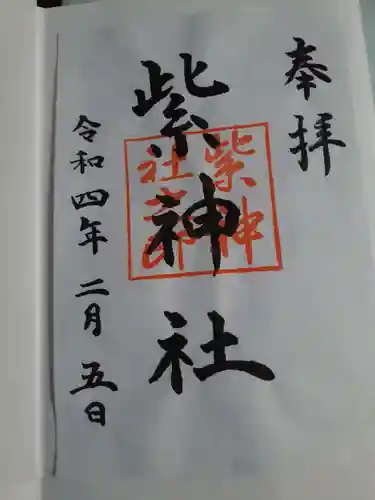 奉拝
紫神社
紫神
社之印
令和四年二月五日